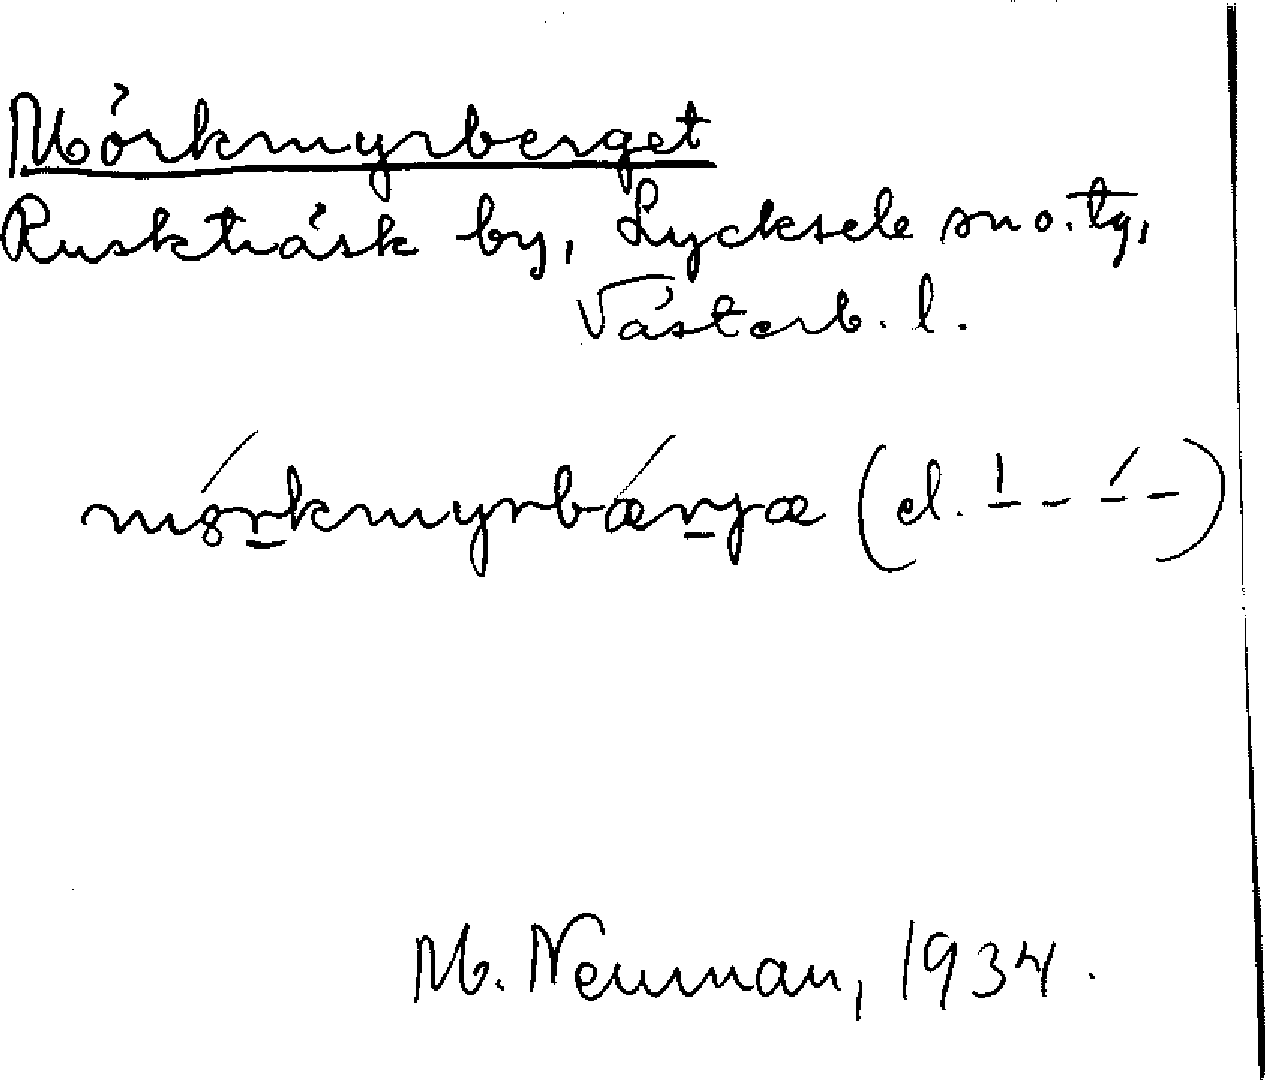 Mörkmyrberget
Ruskträsk by, Lycksele sn o. tg,
Västerb. l.
mörkmyrbærjæ (el. ı́ - - ́ -)
M. Neuman, 1934.